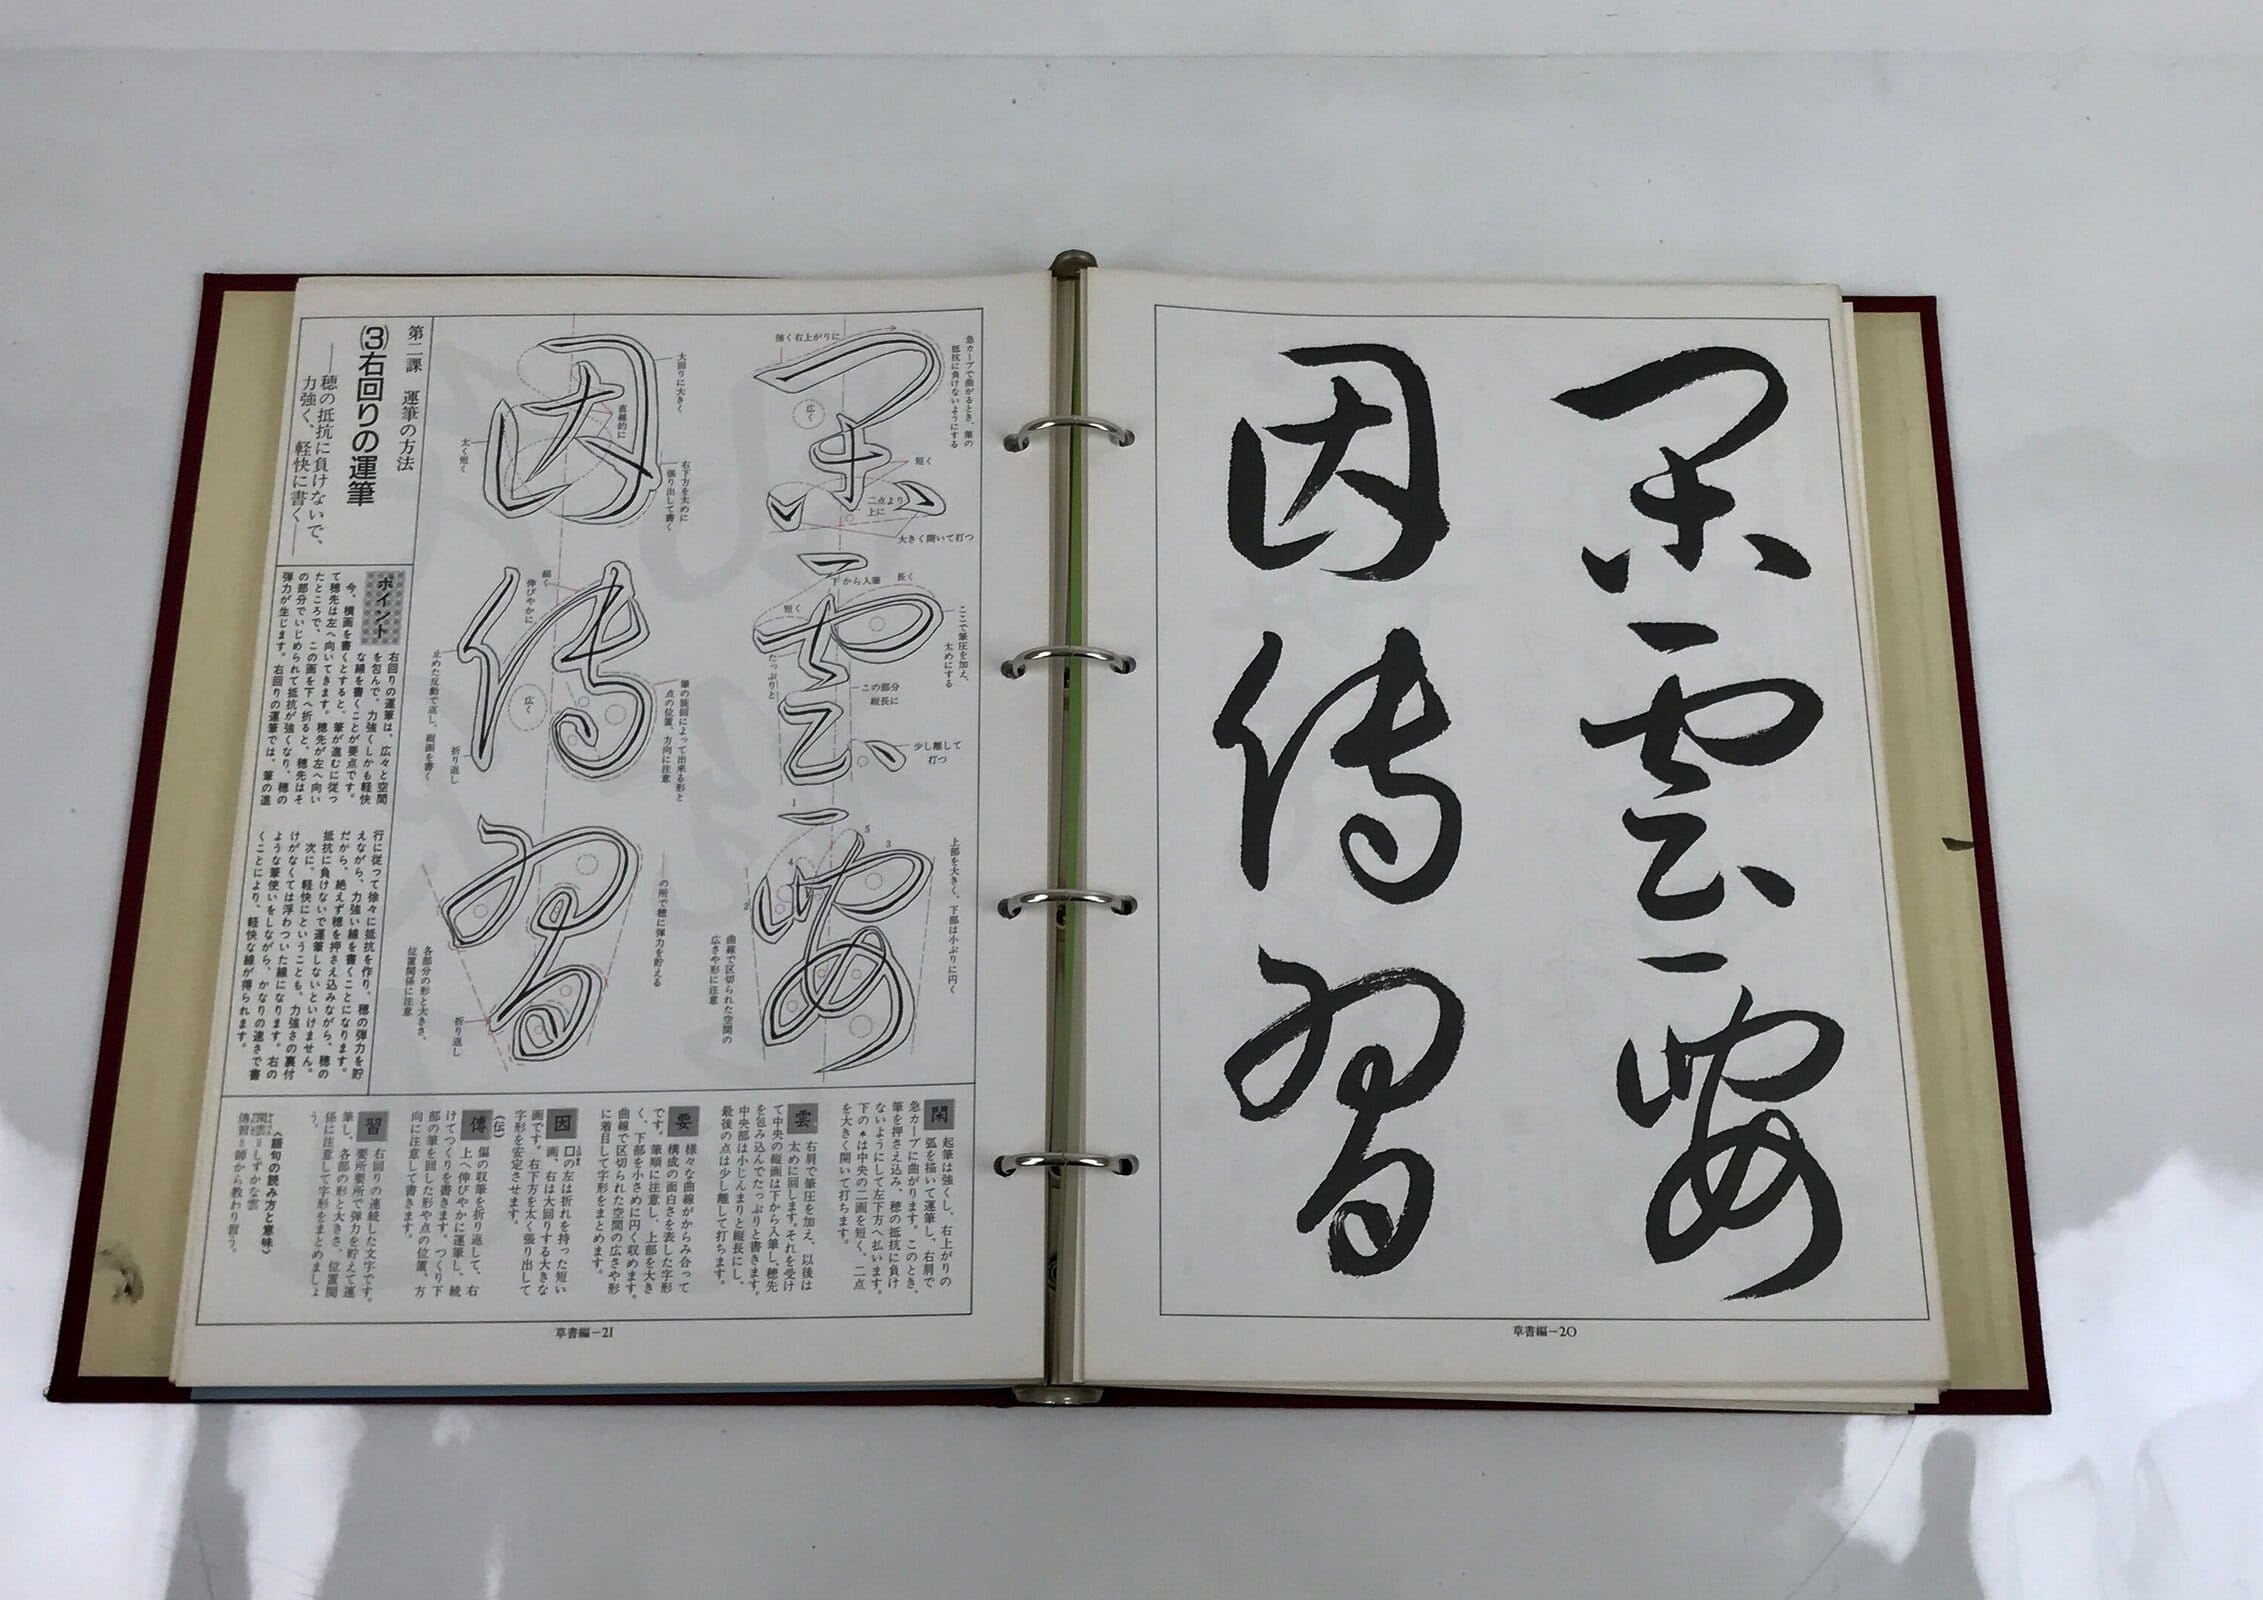 閑雲要
因傳習
草書編－20
第二課　運筆の方法
(3)右回りの運筆
――穂の抵抗に負けないで、
力強く、軽快に書く――
ポイント
右回りの運筆は、広々と空間
を包んで、力強くしかも軽快
な線を書くことが要点です。
今、横画を書くとすると、筆が進むに従っ
て穂先は左へ向いてきます。穂先が左へ向い
たところで、この画を下へ折ると、穂先はそ
の部分でいじめられて抵抗が強くなり、穂の
弾力が生じます。右回りの運筆では、筆の進
行に従って徐々に抵抗を作り、穂の弾力を貯
えながら、力強い線を書くことになります。
だから、絶えず穂を押さえ込みながら、穂の
抵抗に負けないで運筆しないといけません。
次に、軽快にということも、力強さの裏付
けがなくては浮わついた線になります。右の
ような筆使いをしながら、かなりの速さで書
くことにより、軽快な線が得られます。
急カーブで曲がるとき、筆の
抵抗に負けないようにする
強く右上がりに
広く
短く
二点より
上に
大きく開いて打つ
下から入筆
長く
短く
ここで筆圧を加え、
太めにする
たっぷりと
この部分
縦長に
少し離して
打つ
上部を大きく、下部は小ぶりに円く
1
2
3
4
5
曲線で区切られた空間の
広さや形に注意
大回りに大きく
直線的に
太く短く
右下方を太めに
張り出して書く
細く
伸びやかに
広く
止めた反動で返し、縦画を書く
折り返し
筆の旋回によって出来る形と
点の位置、方向に注意
の所で穂に弾力を貯える
各部分の形と大きさ、
位置関係に注意
折り返し
閑
起筆は強くし、右上がりの
弧を描いて運筆し、右肩で
急カーブに曲がります。このとき、
筆を押さえ込み、穂の抵抗に負け
ないようにして左下方へ払います。
下の＊は中央の二画を短く、二点
を大きく開いて打ちます。
雲
右肩で筆圧を加え、以後は
太めに回します。それを受け
て中央の縦画は下から入筆し、穂先
を包み込んでたっぷりと書きます。
中央部は小じんまりと縦長にし、
最後の点は少し離して打ちます。
要
様々な曲線がからみ合って
構成の面白さを表した字形
です。筆順に注意し、上部を大き
く、下部を小さめに円く収めます。
曲線で区切られた空間の広さや形
に着目して字形をまとめます。
因
口の左は折れを持った短い
画、右は大回りする大きな
画です。右下方を太く張り出して
字形を安定させます。
傳
(伝)
偏の収筆を折り返して、右
上へ伸びやかに運筆し、続
けてつくりを書きます。つくり下
部の筆を回した形や点の位置、方
向に注意して書きます。
習
右回りの連続した文字です。
要所要所で弾力を貯えて運
筆し、各部の形と大きさ、位置関
係に注意して字形をまとめましょ
う。
〈語句の読み方と意味〉
閑雲＝しずかな雲
傳習＝師から教わり習う。
草書編－21